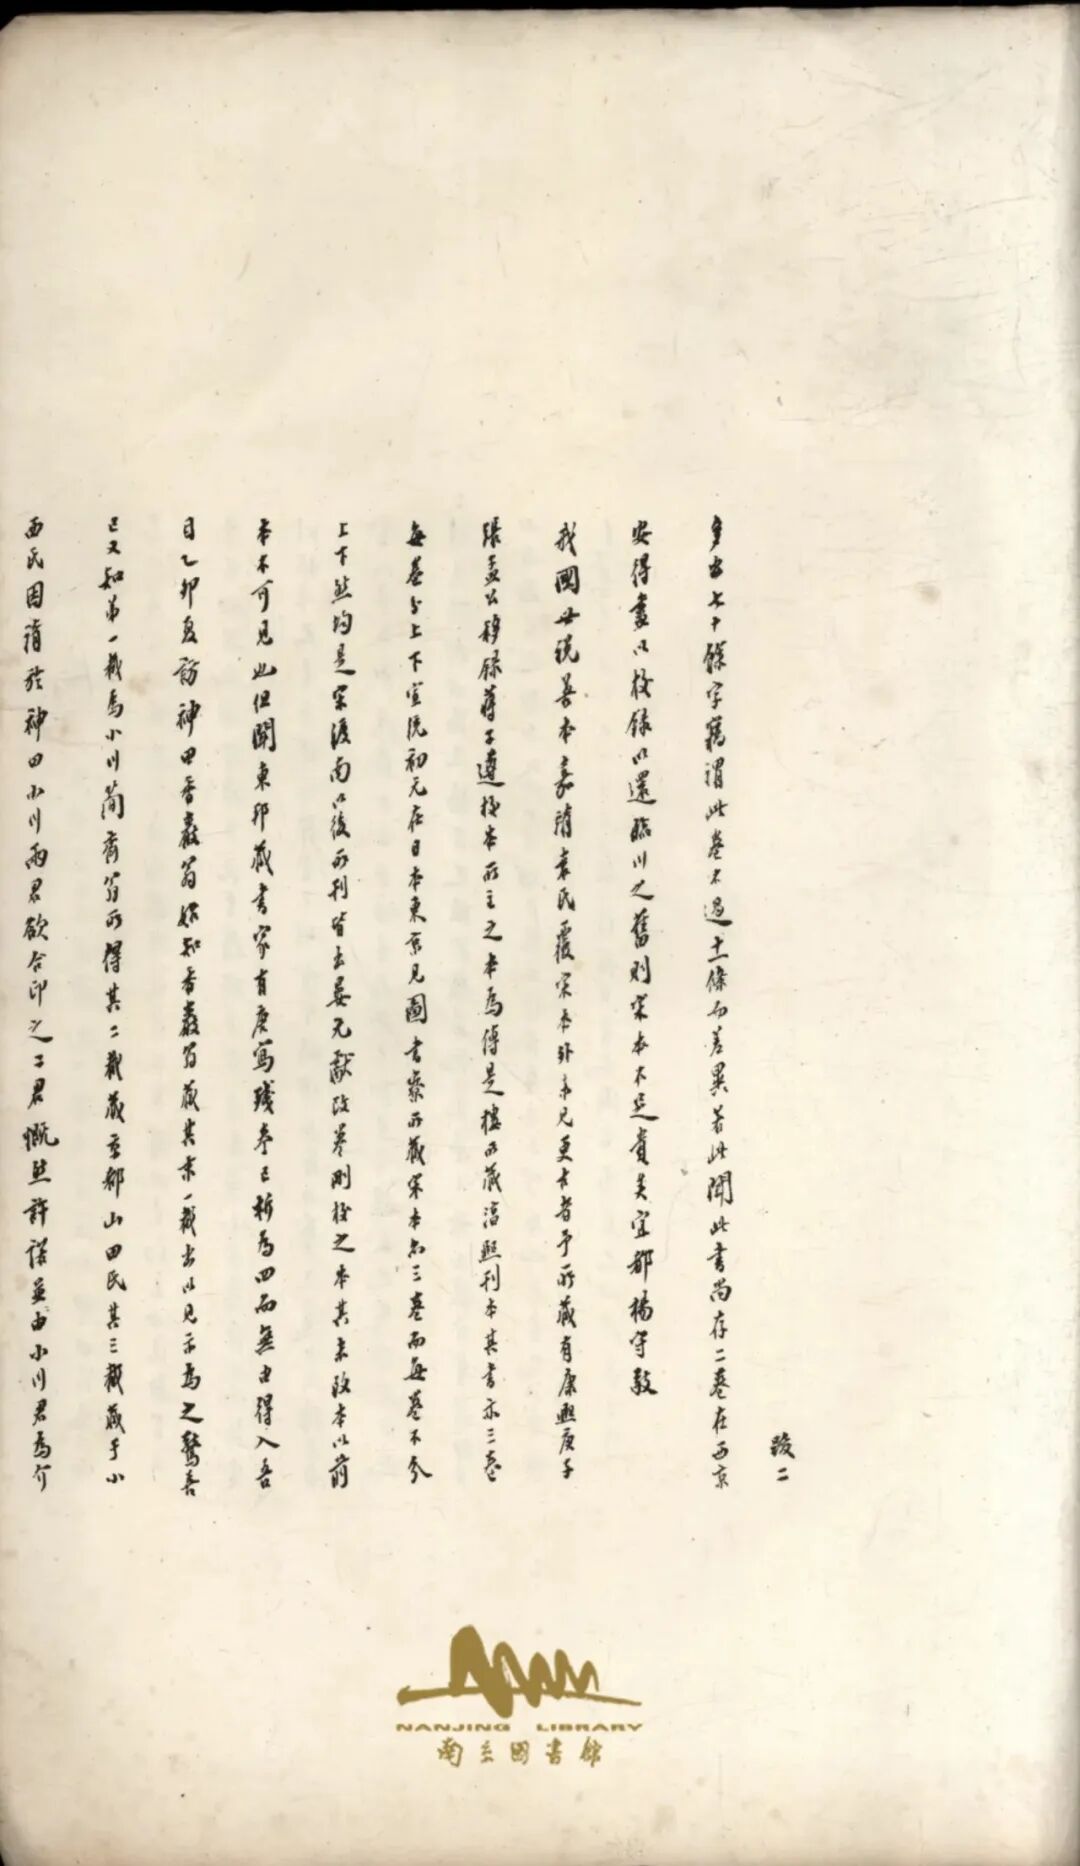 跋二
多出七十餘字竊謂此卷不過十一條而差異若此聞此書尚存二卷在西京
安得盡以校錄以還臨川之舊則宋本不足貴矣宜都楊守敬
我國世說善本嘉靖袁氏覆宋本外未見更古者予所藏有康熙庚子
張孟公移錄蔣子遵校本所主之本為傳是樓所藏淳熙刊本其書亦三卷
每卷分上下宣統初元在日本東京見圖書寮所藏宋本亦三卷而每卷不分
上下然均是宋渡南以後所刊皆出晏元獻改卷刪校之本其未改本以前
本不可見也但聞東邦藏書家有唐寫殘卷已析為四而無由得入吾
目乙卯夏訪神田香巖翁始知香巖翁藏其末一截出以見示為之驚喜
已又知第一截為小川簡齋翁所得其二截藏京都山田氏其三截藏于小
西氏因請於神田小川兩君欲合印之二君慨然許諾並由小川君為介
NANJING LIBRARY
南京圖書館